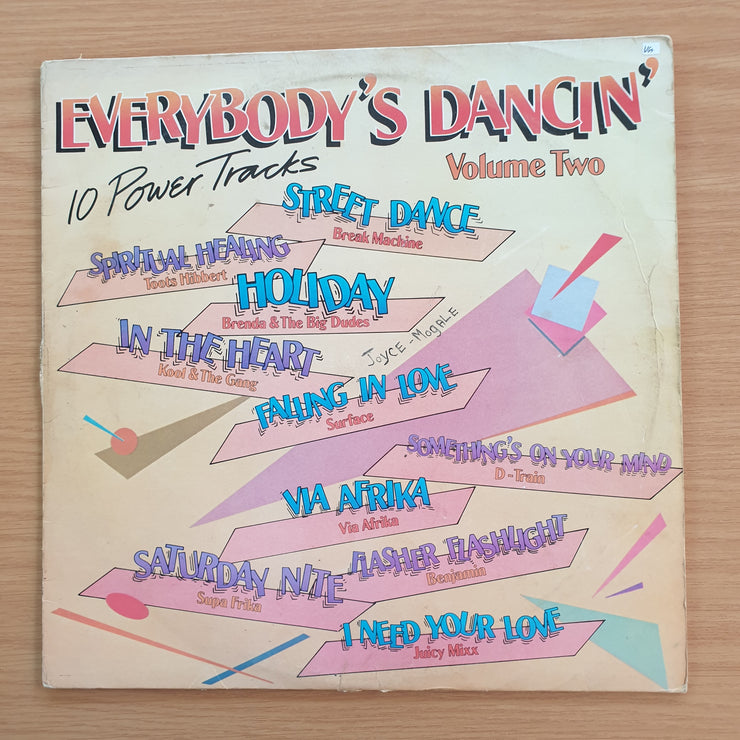 VG
EVERYBODY'S DANCIN'
Volume Two
10 Power Tracks
STREET DANCE
Break Machine
SPIRITUAL HEALING
Toots Hibbert
HOLIDAY
Brenda & The Big Dudes
IN THE HEART
Kool & The Gang
JOYCE - MOGALE
FALLING IN LOVE
Surface
SOMETHING'S ON YOUR MIND
D-Train
VIA AFRIKA
Via Afrika
FLASHER FLASHLIGHT
Benjamin
SATURDAY NITE
Supa Frika
I NEED YOUR LOVE
Juicy Mixx